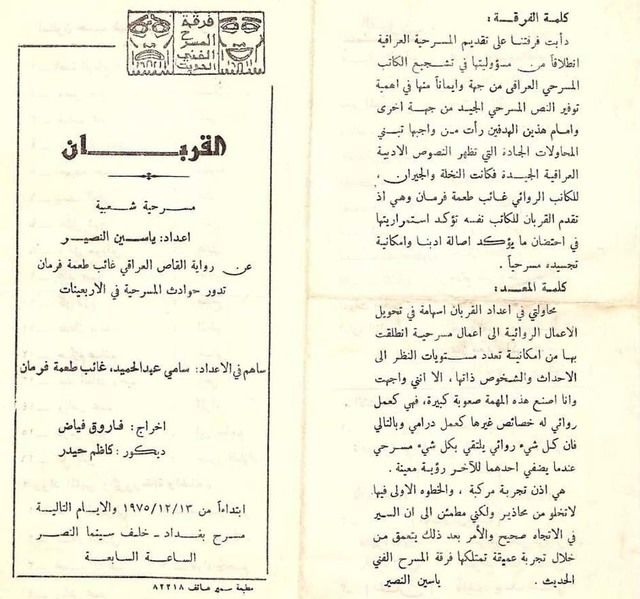 فرقة
المسرح
الفني
الحديث
القربان
مسرحية شعبية
اعداد: ياسين النصير
عن رواية القاص العراقي غائب طعمة فرمان
تدور حوادث المسرحية في الاربعينات
ساهم في الاعداد: سامي عبدالحميد، غائب طعمة فرمان
اخراج: فاروق فياض
ديكور: كاظم حيدر
ابتداءاً من ١٩٧٥/١٢/١٣ والايام التالية
مسرح بغداد - خلف سينما النصر
الساعة السابعة
مطبعة سمير هاتف ٨٢٢١٨
كلمة الفرقة :
دأبت فرقتنا على تقديم المسرحية العراقية
انطلاقاً من مسؤوليتها في تشجيع الكاتب
المسرحي العراقي من جهة وايماناً منها في اهمية
توفير النص المسرحي الجيد من جهة اخرى
وامام هذين الهدفين رأت من واجبها تبني
المحاولات الجادة التي تظهر النصوص الادبية
العراقية الجيدة فكانت النخلة والجيران ،
للكاتب الروائي غائب طعمة فرمان وهي اذ
تقدم القربان للكاتب نفسه تؤكد استمراريتها
في احتضان ما يؤكد اصالة ادبنا وامكانية
تجسيده مسرحياً .
كلمة المعد :
محاولتي في اعداد القربان اسهامة في تحويل
الاعمال الروائية الى اعمال مسرحية انطلقت
بها من امكانية تعدد مستويات النظر الى
الاحداث والشخوص ذاتها ، الا انني واجهت
وانا اصنع هذه المهمة صعوبة كبيرة، فهي كعمل
روائي له خصائص غيرها كعمل درامي وبالتالي
فان كل شيء روائي يلتقي بكل شيء مسرحي
عندما يضفي احدهما للآخر رؤية معينة .
هي اذن تجربة مركبة ، والخطوه الاولى فيها
لاتخلو من محاذير ولكني مطمئن الى ان السير
في الاتجاه صحيح والأمر بعد ذلك يتعمق من
خلال تجربة عميقة تمتلكها فرقة المسرح الفني
الحديث . ياسين النصير